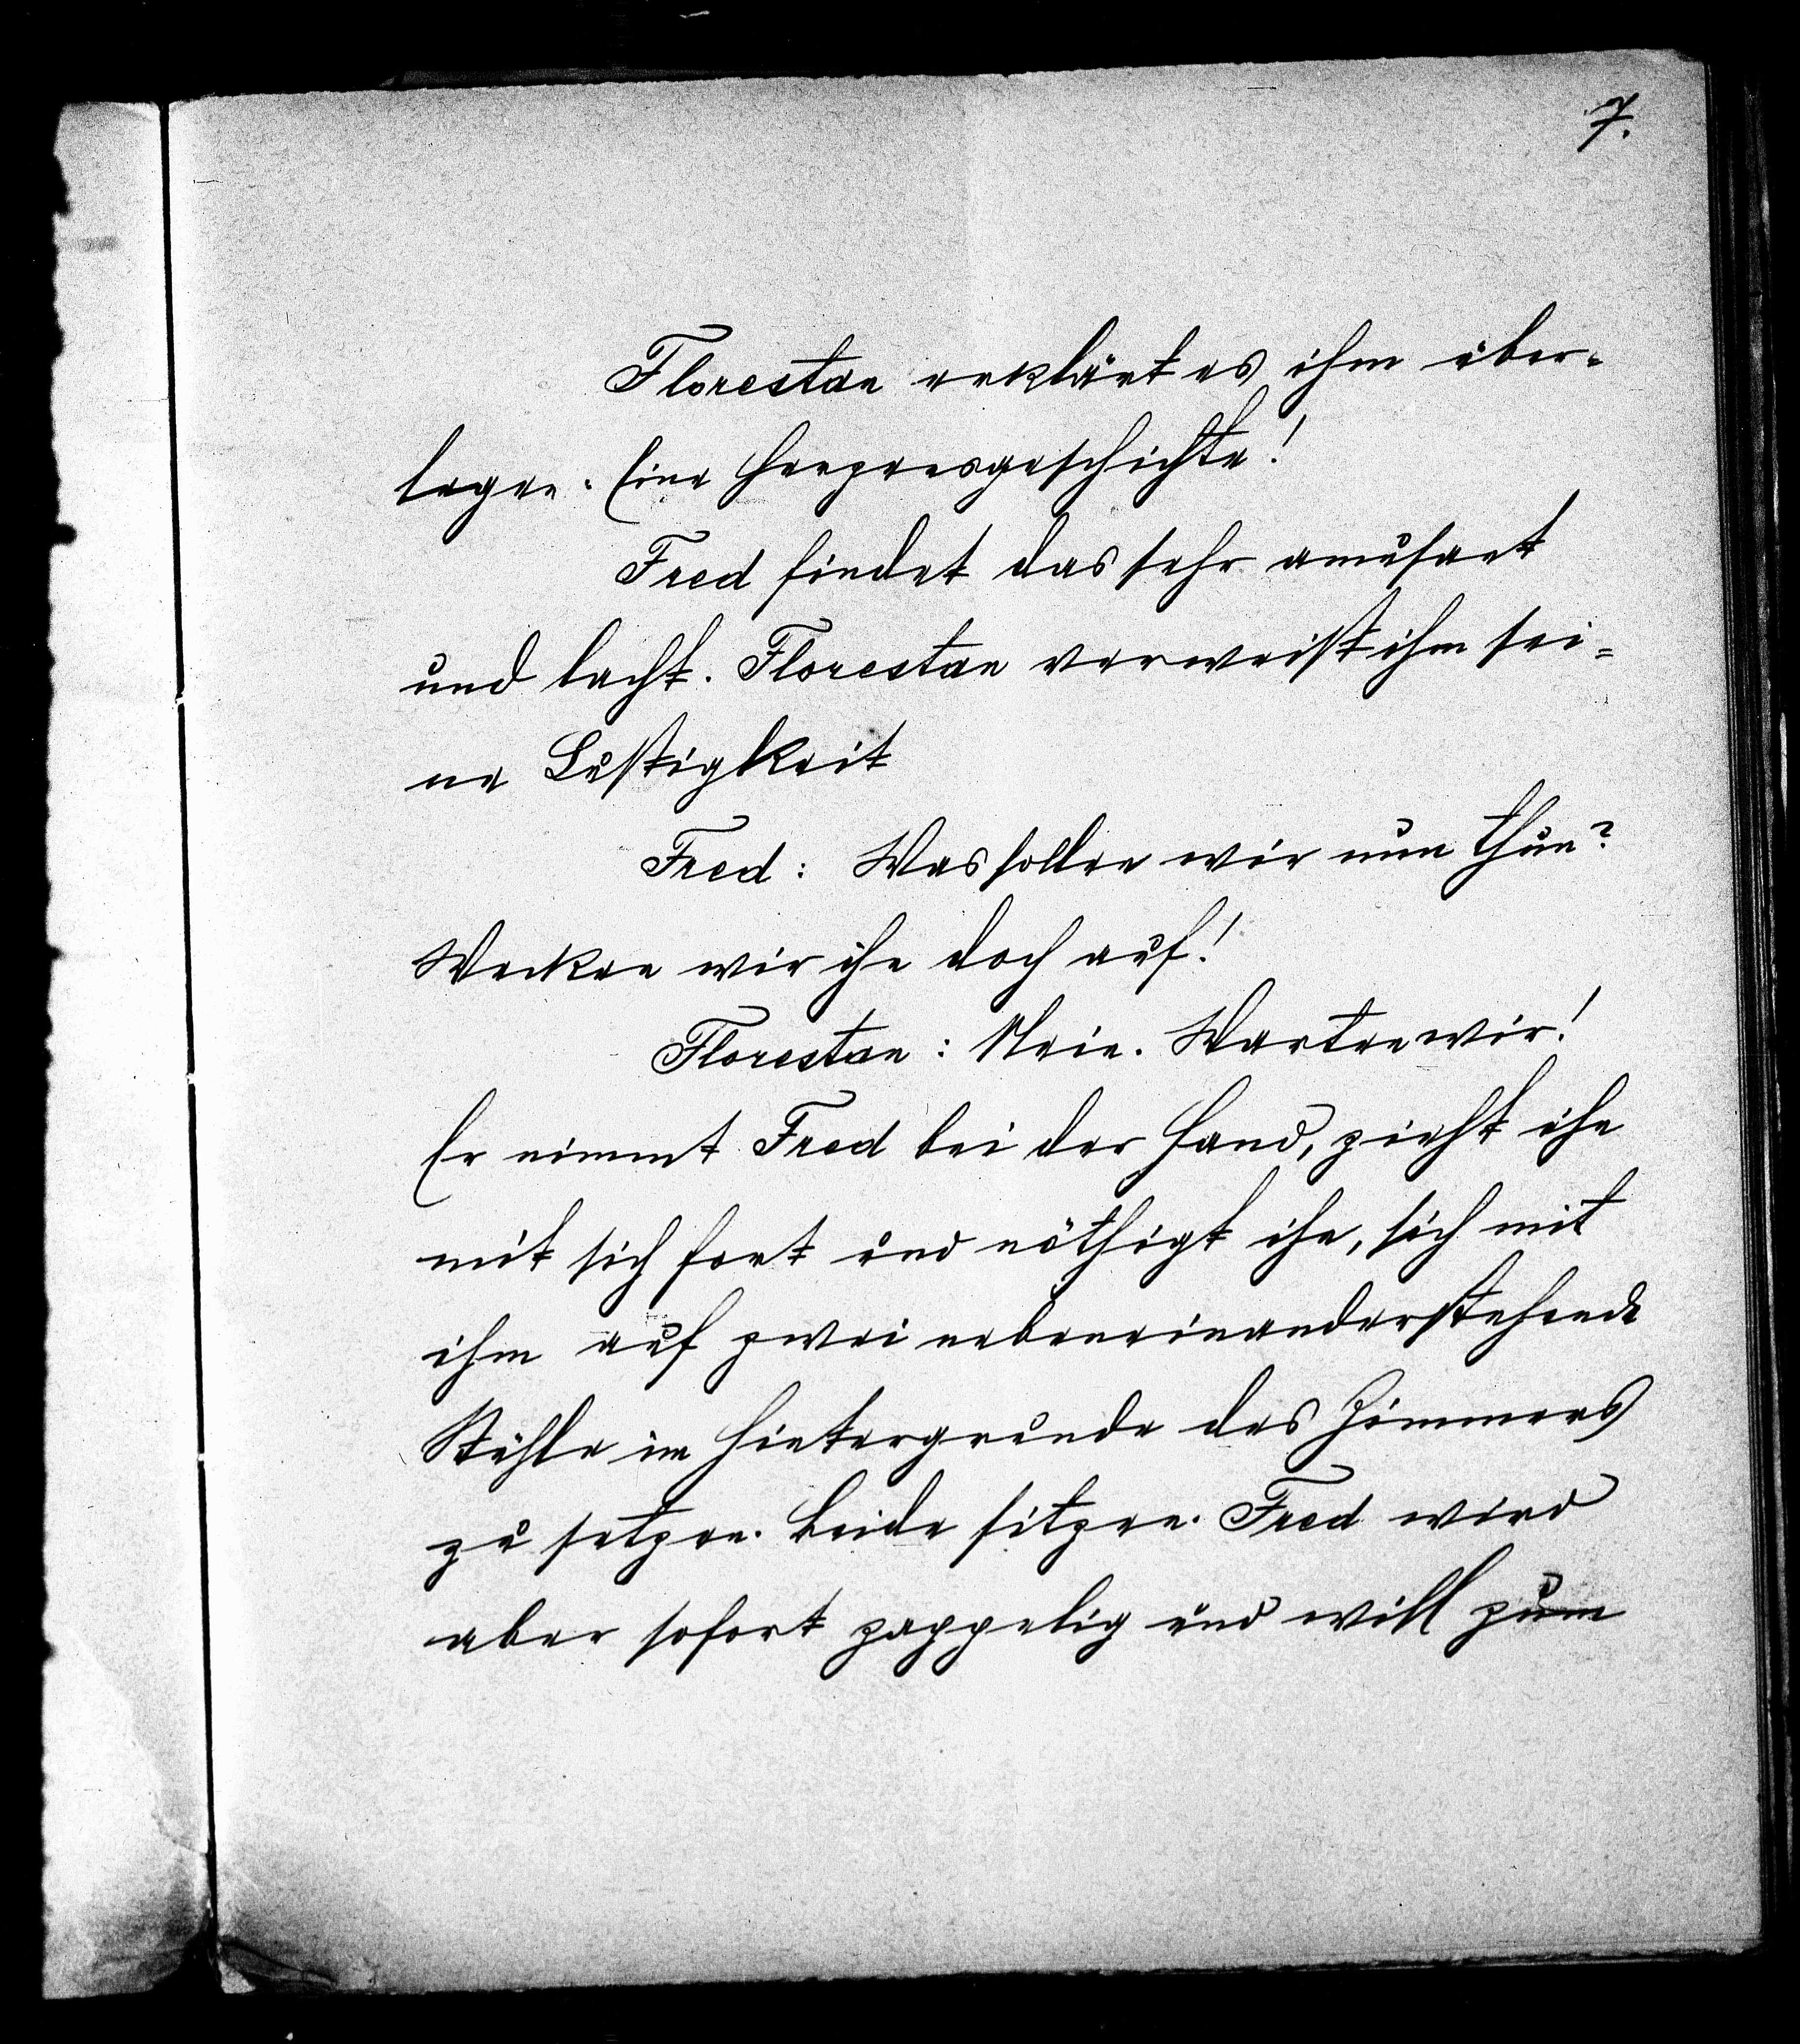 7.
Florestan erklärt es ihm über-
legen. Eine Herzensgeschichte!
Fred findet das sehr amusant
und lacht. Florestan verweist ihm sei=
ne Lustigkeit
Fred: Was sollen wir nun thun?
Wecken wir ihn doch auf!
Florestan: Nein. Warten wir!
Er nimmt Fred bei der Hand, zieht ihn
mit sich fort und nöthigt ihn, sich mit
ihm auf zwei nebeneinanderstehende
Stühle im Hintergrunde des Zimmers
zu setzen. Beide sitzen. Fred wird
aber sofort zappelig und will zum